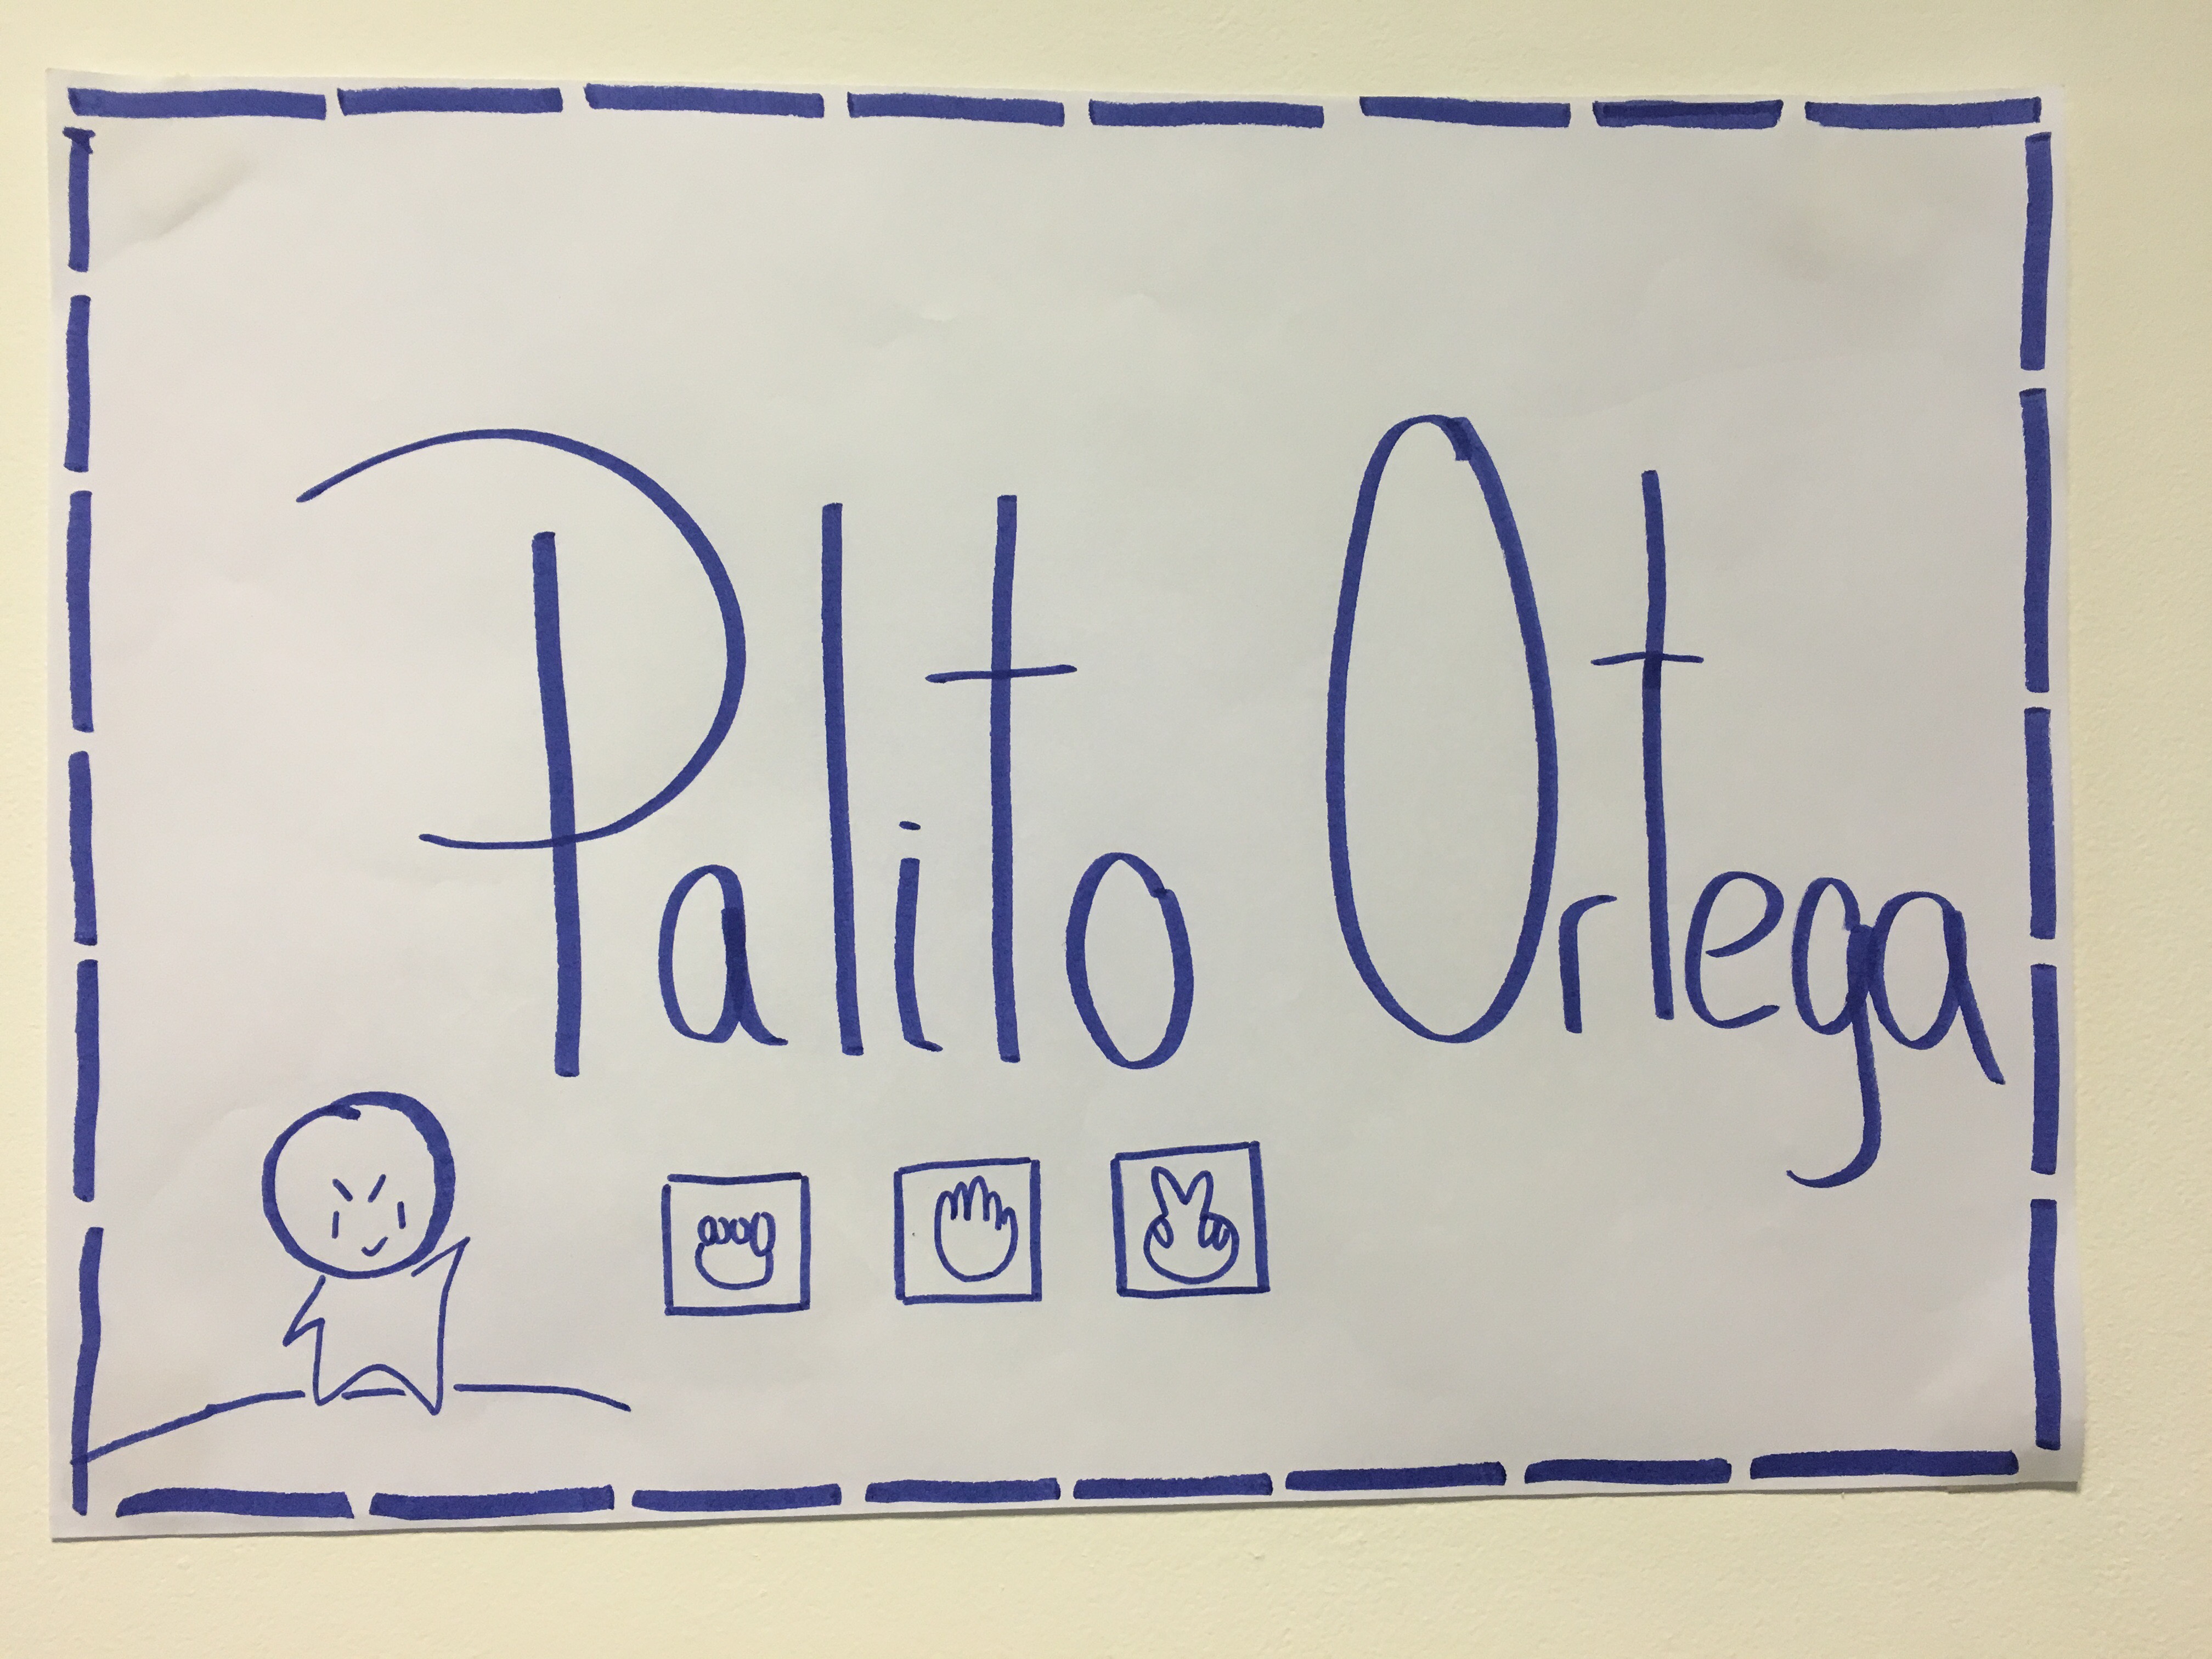 Palito Ortega